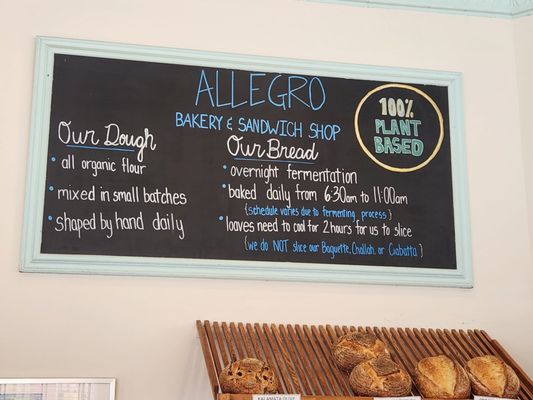 ALLEGRO
BAKERY & SANDWICH SHOP
100%
PLANT
BASED
Our Dough
• all organic flour
• mixed in small batches
• shaped by hand daily
Our Bread
• overnight fermentation
• baked daily from 6:30am to 11:00am
(schedule varies due to fermenting process)
• loaves need to cool for 2 hours for us to slice
(we do NOT slice our Baguette, Challah, or Ciabatta)
KALAMATA OLIVE